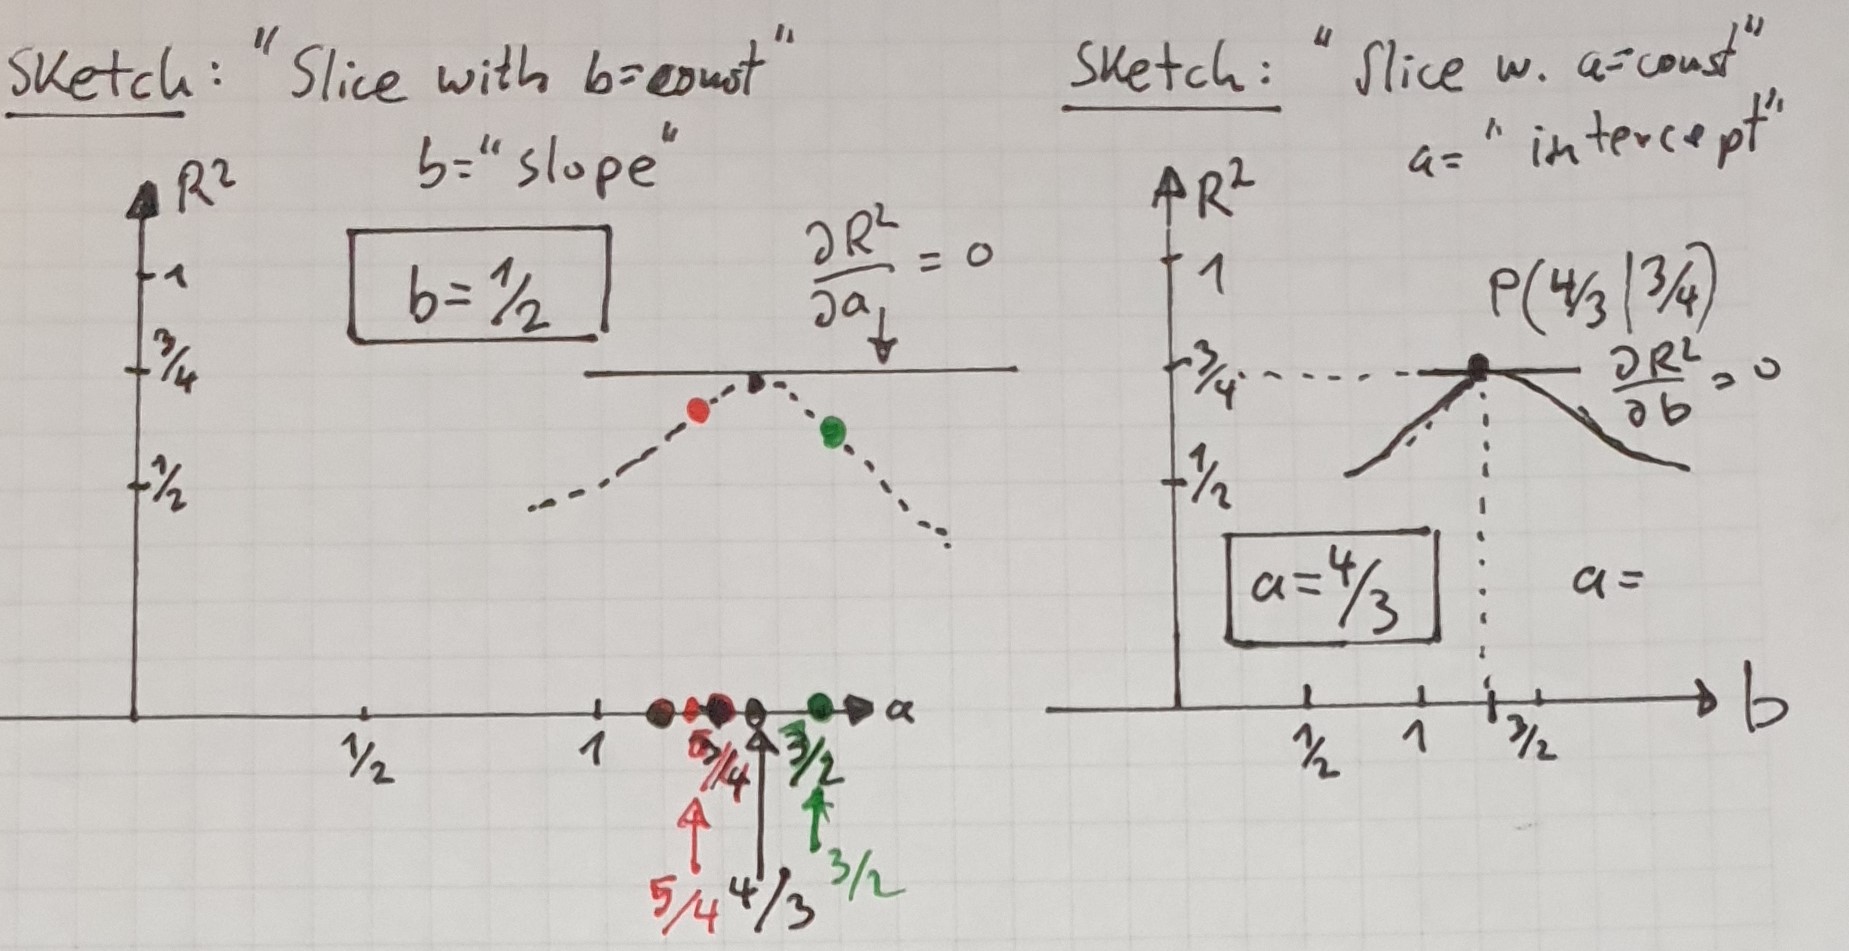 Sketch: "Slice with b=const"
b="slope"
R²
b=1/2
∂R²/∂a = 0
1
3/4
1/2
1/2
1
5/4
3/2
a
5/4
4/3
3/2
Sketch: "Slice w. a=const"
a="intercept"
R²
1
P(4/3|3/4)
3/4
∂R²/∂b = 0
1/2
a=4/3
a=
1/2
1
3/2
b